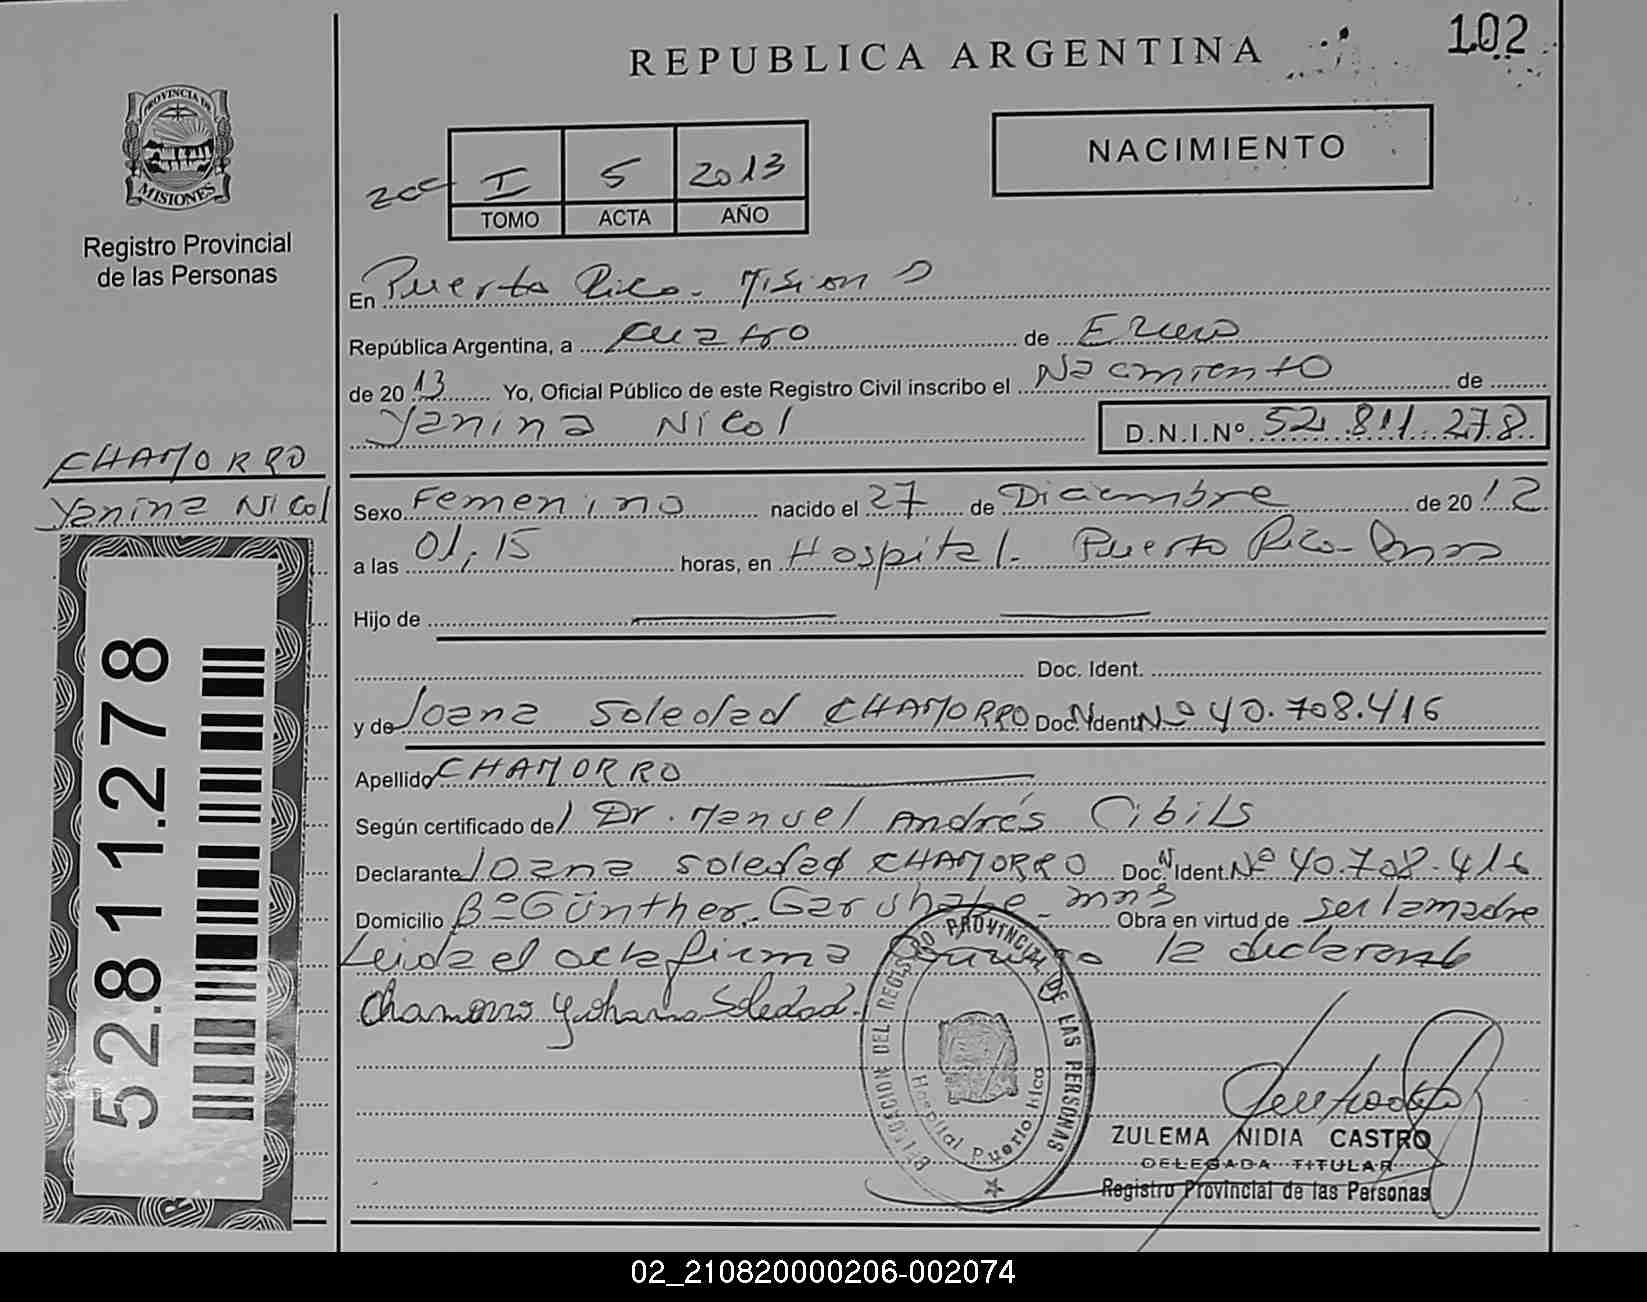 102
REPUBLICA ARGENTINA
NACIMIENTO
I 5 2013
TOMO ACTA AÑO
PROVINCIA DE
MISIONES
Registro Provincial
de las Personas
En Puerto Rico - Misiones
República Argentina, a cuatro de Enero
de 2013 Yo, Oficial Público de este Registro Civil inscribo el Nacimiento de
Yanina Nicol D.N.I.Nº 52.811.278
CHAMORRO
Yanina Nicol
Sexo Femenino nacido el 27 de Diciembre de 2012
a las 01,15 horas, en Hospital - Puerto Rico -
Hijo de
Doc. Ident.
y de Joana Soledad CHAMORRO Doc. N Ident. Nº 40.708.416
Apellido CHAMORRO
Según certificado del Dr. Manuel Andrés Cibils
Declarante Joana Soledad CHAMORRO Doc. N Ident. Nº 40.708.416
Domicilio Bº Günther - Garuhapé - mns Obra en virtud de ser la madre
Leida el acta firma conmigo la declarante
Chamorro Yohana Soledad.
DELEGACION DEL REGISTRO PROVINCIAL DE LAS PERSONAS
Hospital Puerto Rico
ZULEMA NIDIA CASTRO
DELEGADA TITULAR
Registro Provincial de las Personas
52.811.278
02_210820000206-002074